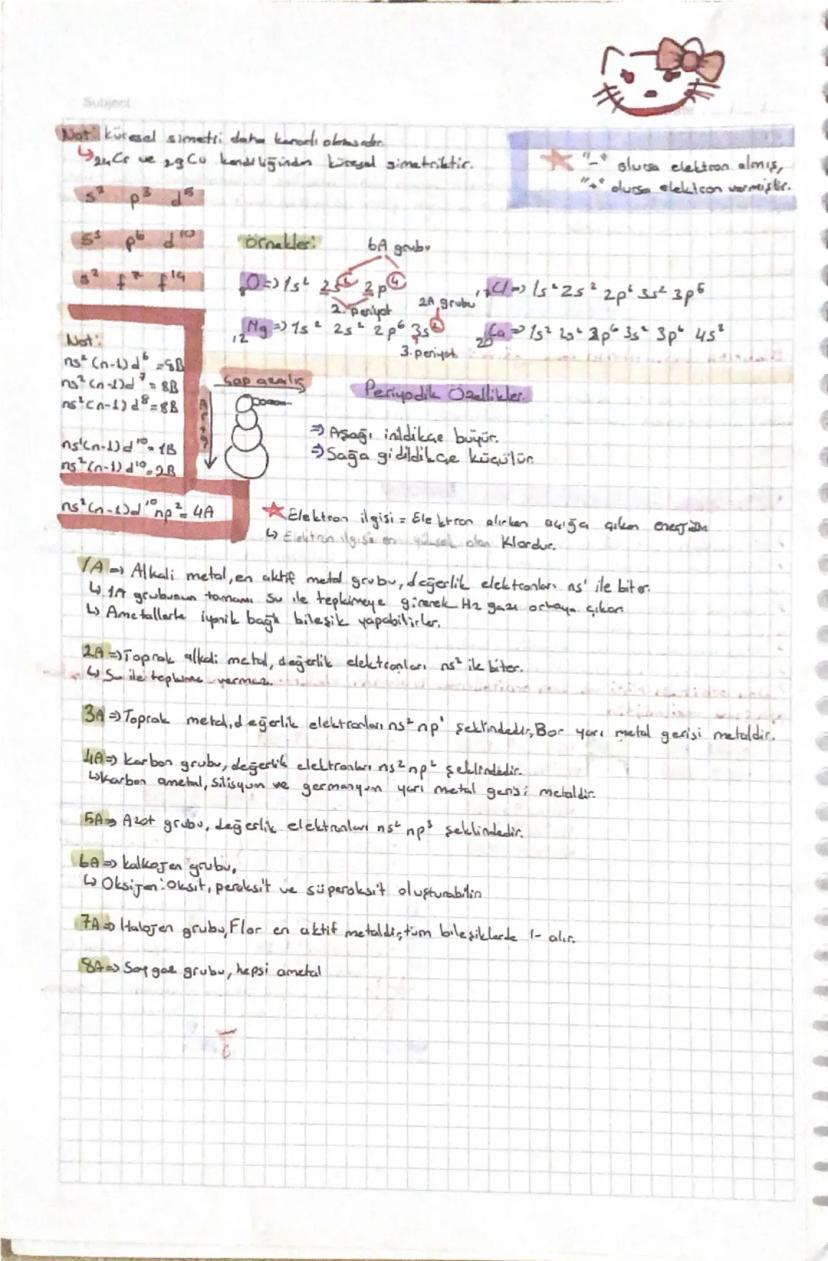 Subject
Not: küresel simetri daha kararlı olmasıdır.
↳ 24Cr ve 29Cu kendiliğinden küresel simetriktir.
☆ "-" olursa elektron almış,
"+" olursa elektron vermiştir.
s² p³ d⁵
s¹ p⁶ d¹⁰
s² f⁷ f¹⁴
Örnekler:
6A grubu
₈O => 1s² 2s² 2p⁴
2. periyot
₁₇Cl => 1s² 2s² 2p⁶ 3s² 3p⁵
2A grubu
₁₂Mg => 1s² 2s² 2p⁶ 3s²
3. periyot
₂₀Ca => 1s² 2s² 2p⁶ 3s² 3p⁶ 4s²
Not:
ns² (n-1)d⁶ = 8B
ns² (n-1)d⁷ = 8B
ns² (n-1)d⁸ = 8B
ns¹ (n-1)d¹⁰ = 1B
ns² (n-1)d¹⁰ = 2B
ns² (n-1)d¹⁰ np² = 4A
Çap azalış
Artış
Periyodik Özellikler
=> Aşağı inildikçe büyür.
=> Sağa gidildikçe küçülür.
☆ Elektron ilgisi = Elektron alırken açığa çıkan enerjidir
↳ Elektron ilgisi en yüksek olan Klordur.
1A => Alkali metal, en aktif metal grubu, değerlik elektronları ns¹ ile biter.
↳ 1A grubunun tamamı su ile tepkimeye girerek H2 gazı ortaya çıkar
↳ Ametallerle iyonik bağlı bileşik yapabilirler.
2A => Toprak alkali metal, değerlik elektronları ns² ile biter.
↳ Su ile tepkime vermez.
3A => Toprak metal, değerlik elektronları ns² np¹ şeklindedir, Bor yarı metal gerisi metaldir.
4A => Karbon grubu, değerlik elektronları ns² np² şeklindedir.
↳ Karbon ametal, silisyum ve germanyum yarı metal gerisi metaldir.
5A => Azot grubu, değerlik elektronları ns² np³ şeklindedir.
6A => kalkojen grubu,
↳ Oksijen: Oksit, peroksit ve süperoksit oluşturabilir
7A => Halojen grubu, Flor en aktif metaldir, tüm bileşiklerde 1- alır.
8A => Soygaz grubu, hepsi ametal